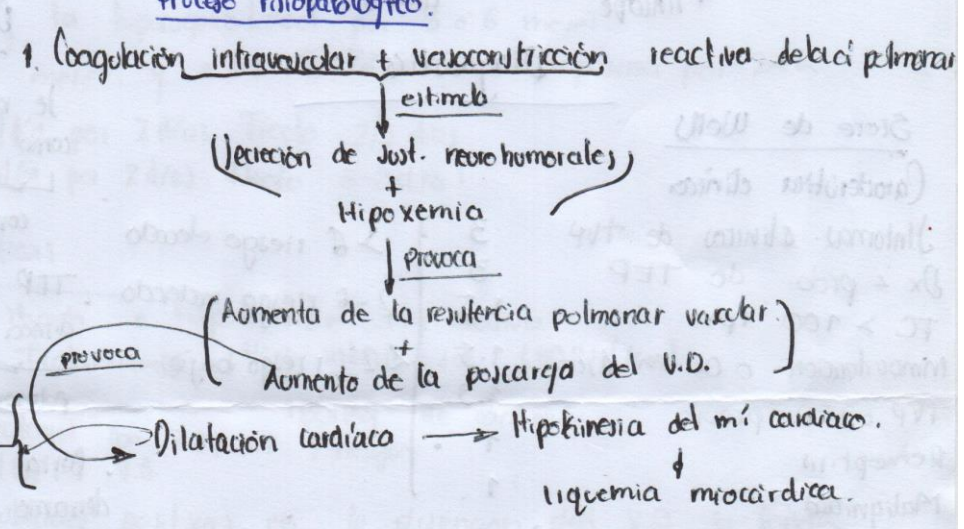 Proceso fisiopatológico.
1. Coagulación intravascular + vasoconstricción reactiva de la a pulmonar
estimula
Secreción de sust. neurohumorales
+
Hipoxemia
provoca
Aumenta de la resistencia pulmonar vascular.
+
Aumento de la poscarga del V.D.
provoca
Dilatación cardíaca → Hipokinesia del m: cardiaco.
isquemia miocárdica.